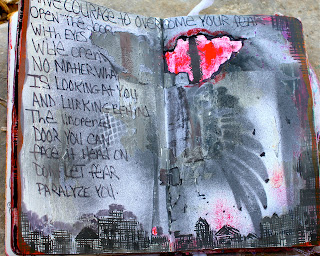 HAVE COURAGE TO OVERCOME YOUR FEAR
OPEN THE DOOR
WITH EYES
WIDE OPEN
NO MATTER WHAT
IS LOOKING AT YOU
AND LURKING BEHIND
THE UNOPENED
DOOR YOU CAN
FACE IT HEAD ON
DON'T LET FEAR
PARALYZE YOU.